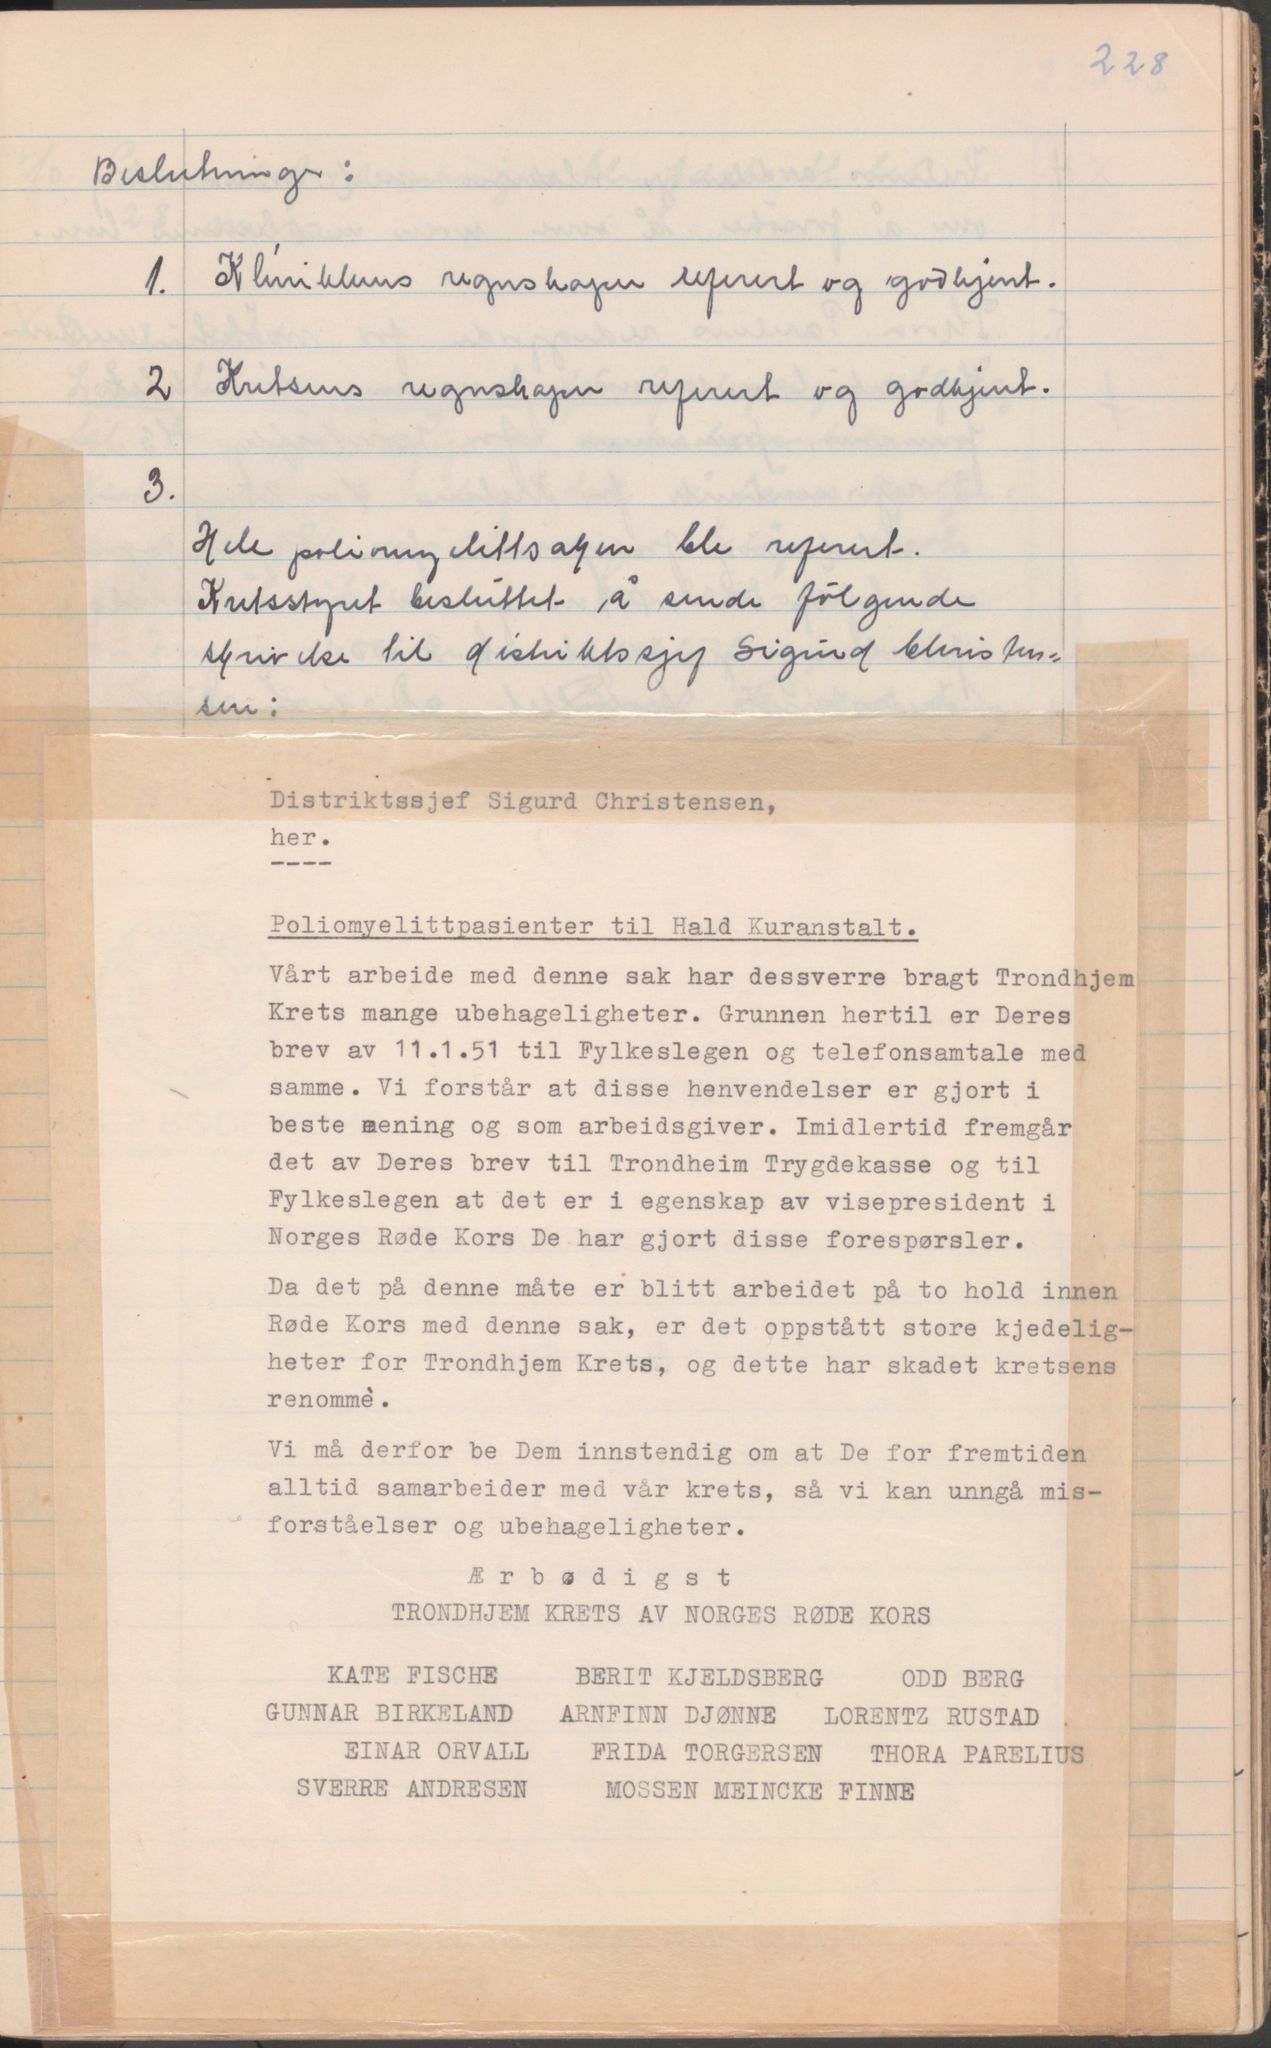 228
Beslutninger:
1. Klinikkens regnskaper referert og godkjent.
2 Kretsens regnskaper referert og godkjent.
3.
Hele poliomyelittsaken ble referert.
Kretsstyret besluttet å sende følgende
skrivelse til distriktssjef Sigurd Christen=
sen:
Distriktssjef Sigurd Christensen,
her.
----
Poliomyelittpasienter til Hald Kuranstalt.
Vårt arbeide med denne sak har dessverre bragt Trondhjem
Krets mange ubehageligheter. Grunnen hertil er Deres
brev av 11.1.51 til Fylkeslegen og telefonsamtale med
samme. Vi forstår at disse henvendelser er gjort i
beste mening og som arbeidsgiver. Imidlertid fremgår
det av Deres brev til Trondheim Trygdekasse og til
Fylkeslegen at det er i egenskap av visepresident i
Norges Røde Kors De har gjort disse forespørsler.
Da det på denne måte er blitt arbeidet på to hold innen
Røde Kors med denne sak, er det oppstått store kjedelig-
heter for Trondhjem Krets, og dette har skadet kretsens
renommè.
Vi må derfor be Dem innstendig om at De for fremtiden
alltid samarbeider med vår krets, så vi kan unngå mis-
forståelser og ubehageligheter.
Ærbødigst
TRONDHJEM KRETS AV NORGES RØDE KORS
KATE FISCHE BERIT KJELDSBERG ODD BERG
GUNNAR BIRKELAND ARNFINN DJØNNE LORENTZ RUSTAD
EINAR ORVALL FRIDA TORGERSEN THORA PARELIUS
SVERRE ANDRESEN MOSSEN MEINCKE FINNE